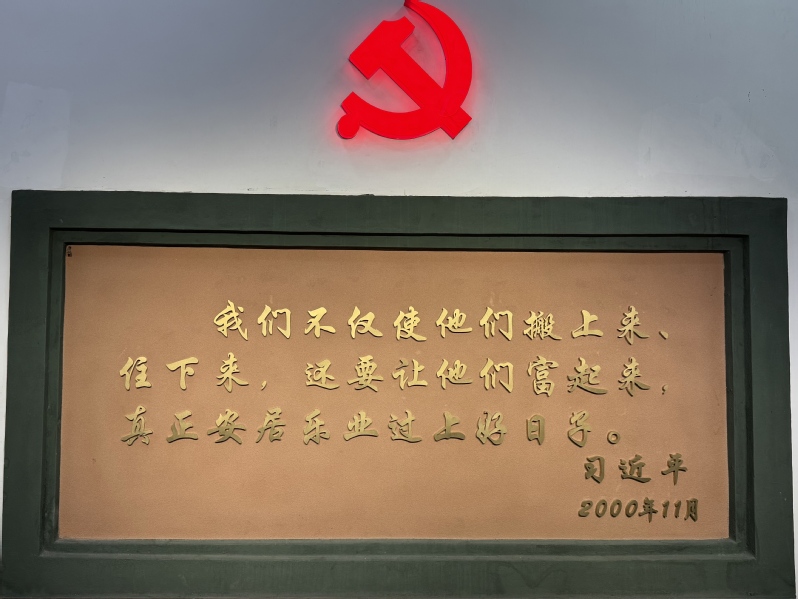 我们不仅使他们搬上来、
住下来，还要让他们富起来，
真正安居乐业过上好日子。
习近平
2000年11月